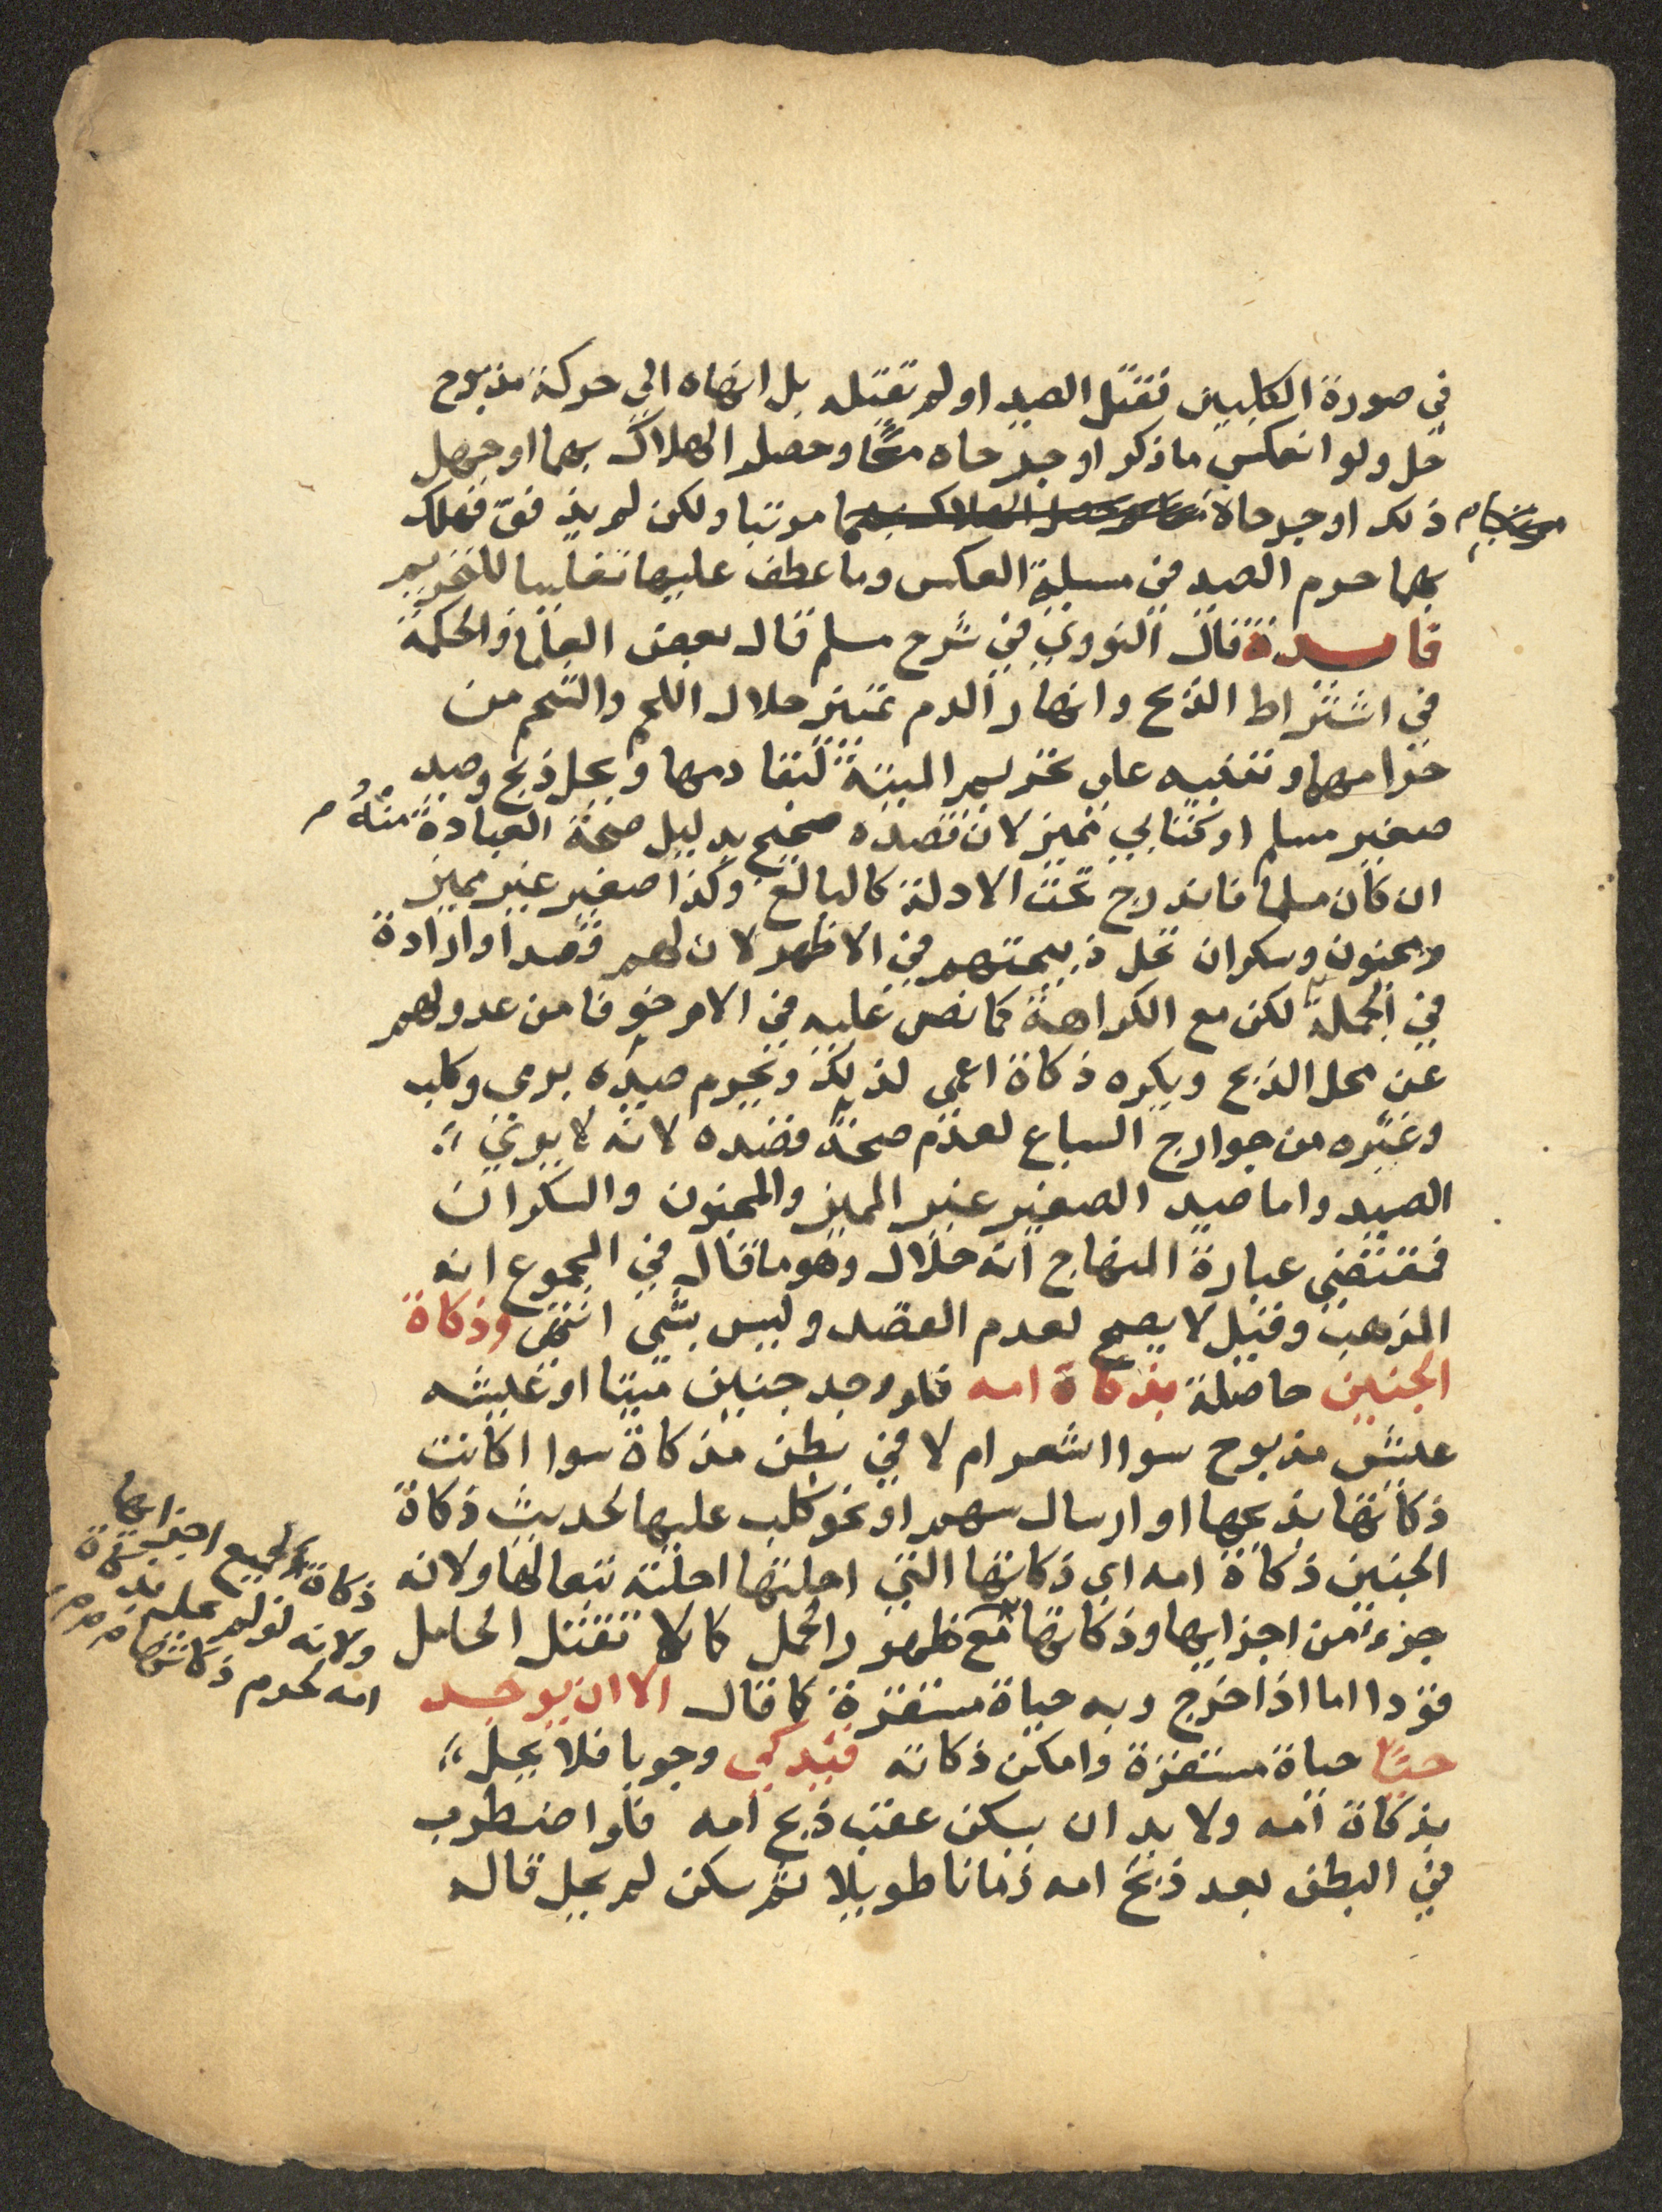 في صورة الكلبين فقتل الصيد او لم تقتله بل انهاه الي حركة مذبوح
حل ولو انعكس ما ذكر او جرحاه معًا وحصل الهلاك بهما او جهل
ذلك او جرحاه معا وحصل الهلاك بهما مرتبا ولكن لم يذفف فهلك
بهما حرم الصيد في مسيلة العكس وما عطف عليها تغليبا للتحريم
فايدة قال النووي في شرح مسلم قال بعض العلما والحكمة
في اشتراط الذبح وانهار الدم تمييز حلال اللحم والشحم من
حرامهما وتنبيه علي تحريم الميتة لبقا دمها ويحل ذبح وصيد
صغير مسلم او كتابي مميز لان قصده صحيح بدليل صحة العبادة منه
ان كان مسلما فاندرج تحت الادلة كالبالغ وكذا صغير غير مميز
ومجنون وسكران تحل ذبيحتهم في الاظهر لان لهم قصدا وارادة
في الجملة لكن مع الكراهة كما نص عليه في الام خوفا من عدولهم
عن محل الذبح ويكره ذكاة اعمى لذلك ويحرم صيده برمى وكلب
وغيره من جوارح السباع لعدم صحة قصده لانه لا يري
الصيد واما صيد الصغير غير المميز والمجنون والسكران
فمقتضى عبارة المنهاج انه حلال وهو ما قال في المجموع انه
المذهب وقيل لا يصح لعدم القصد وليس بشي انتهى وذكاة
الجنين حاصلة بذكاة امه فلو وجد جنين ميتا او عيشه
عيش مذبوح سوا اشعر ام لا في بطن مذكاة سوا اكانت
ذكاتها بذبحها او ارسال سهم او نحو كلب عليها لحديث ذكاة
الجنين ذكاة امه اي ذكاتها التي احلتها احلته تبعا لها ولانه
جزء من اجزايها وذكاتها
ذكاة لجميع اجزايها
ولانه لو لم يحل بذكاة
امه لحرم ذكاتها
مع ظهور الحمل كما لا تقتل الحامل
قودا اما اذا خرج وبه حياة مستقرة كما قال الا ان يوجد
حيًا حياة مستقرة وامكن ذكاته فيذكي وجوبا فلا يحل
بذكاة امه ولا بد ان يسكن عقب ذبح امه فلو اضطرب
في البطن بعد ذبح امه زمانا طويلا ثم سكن لم يحل قاله